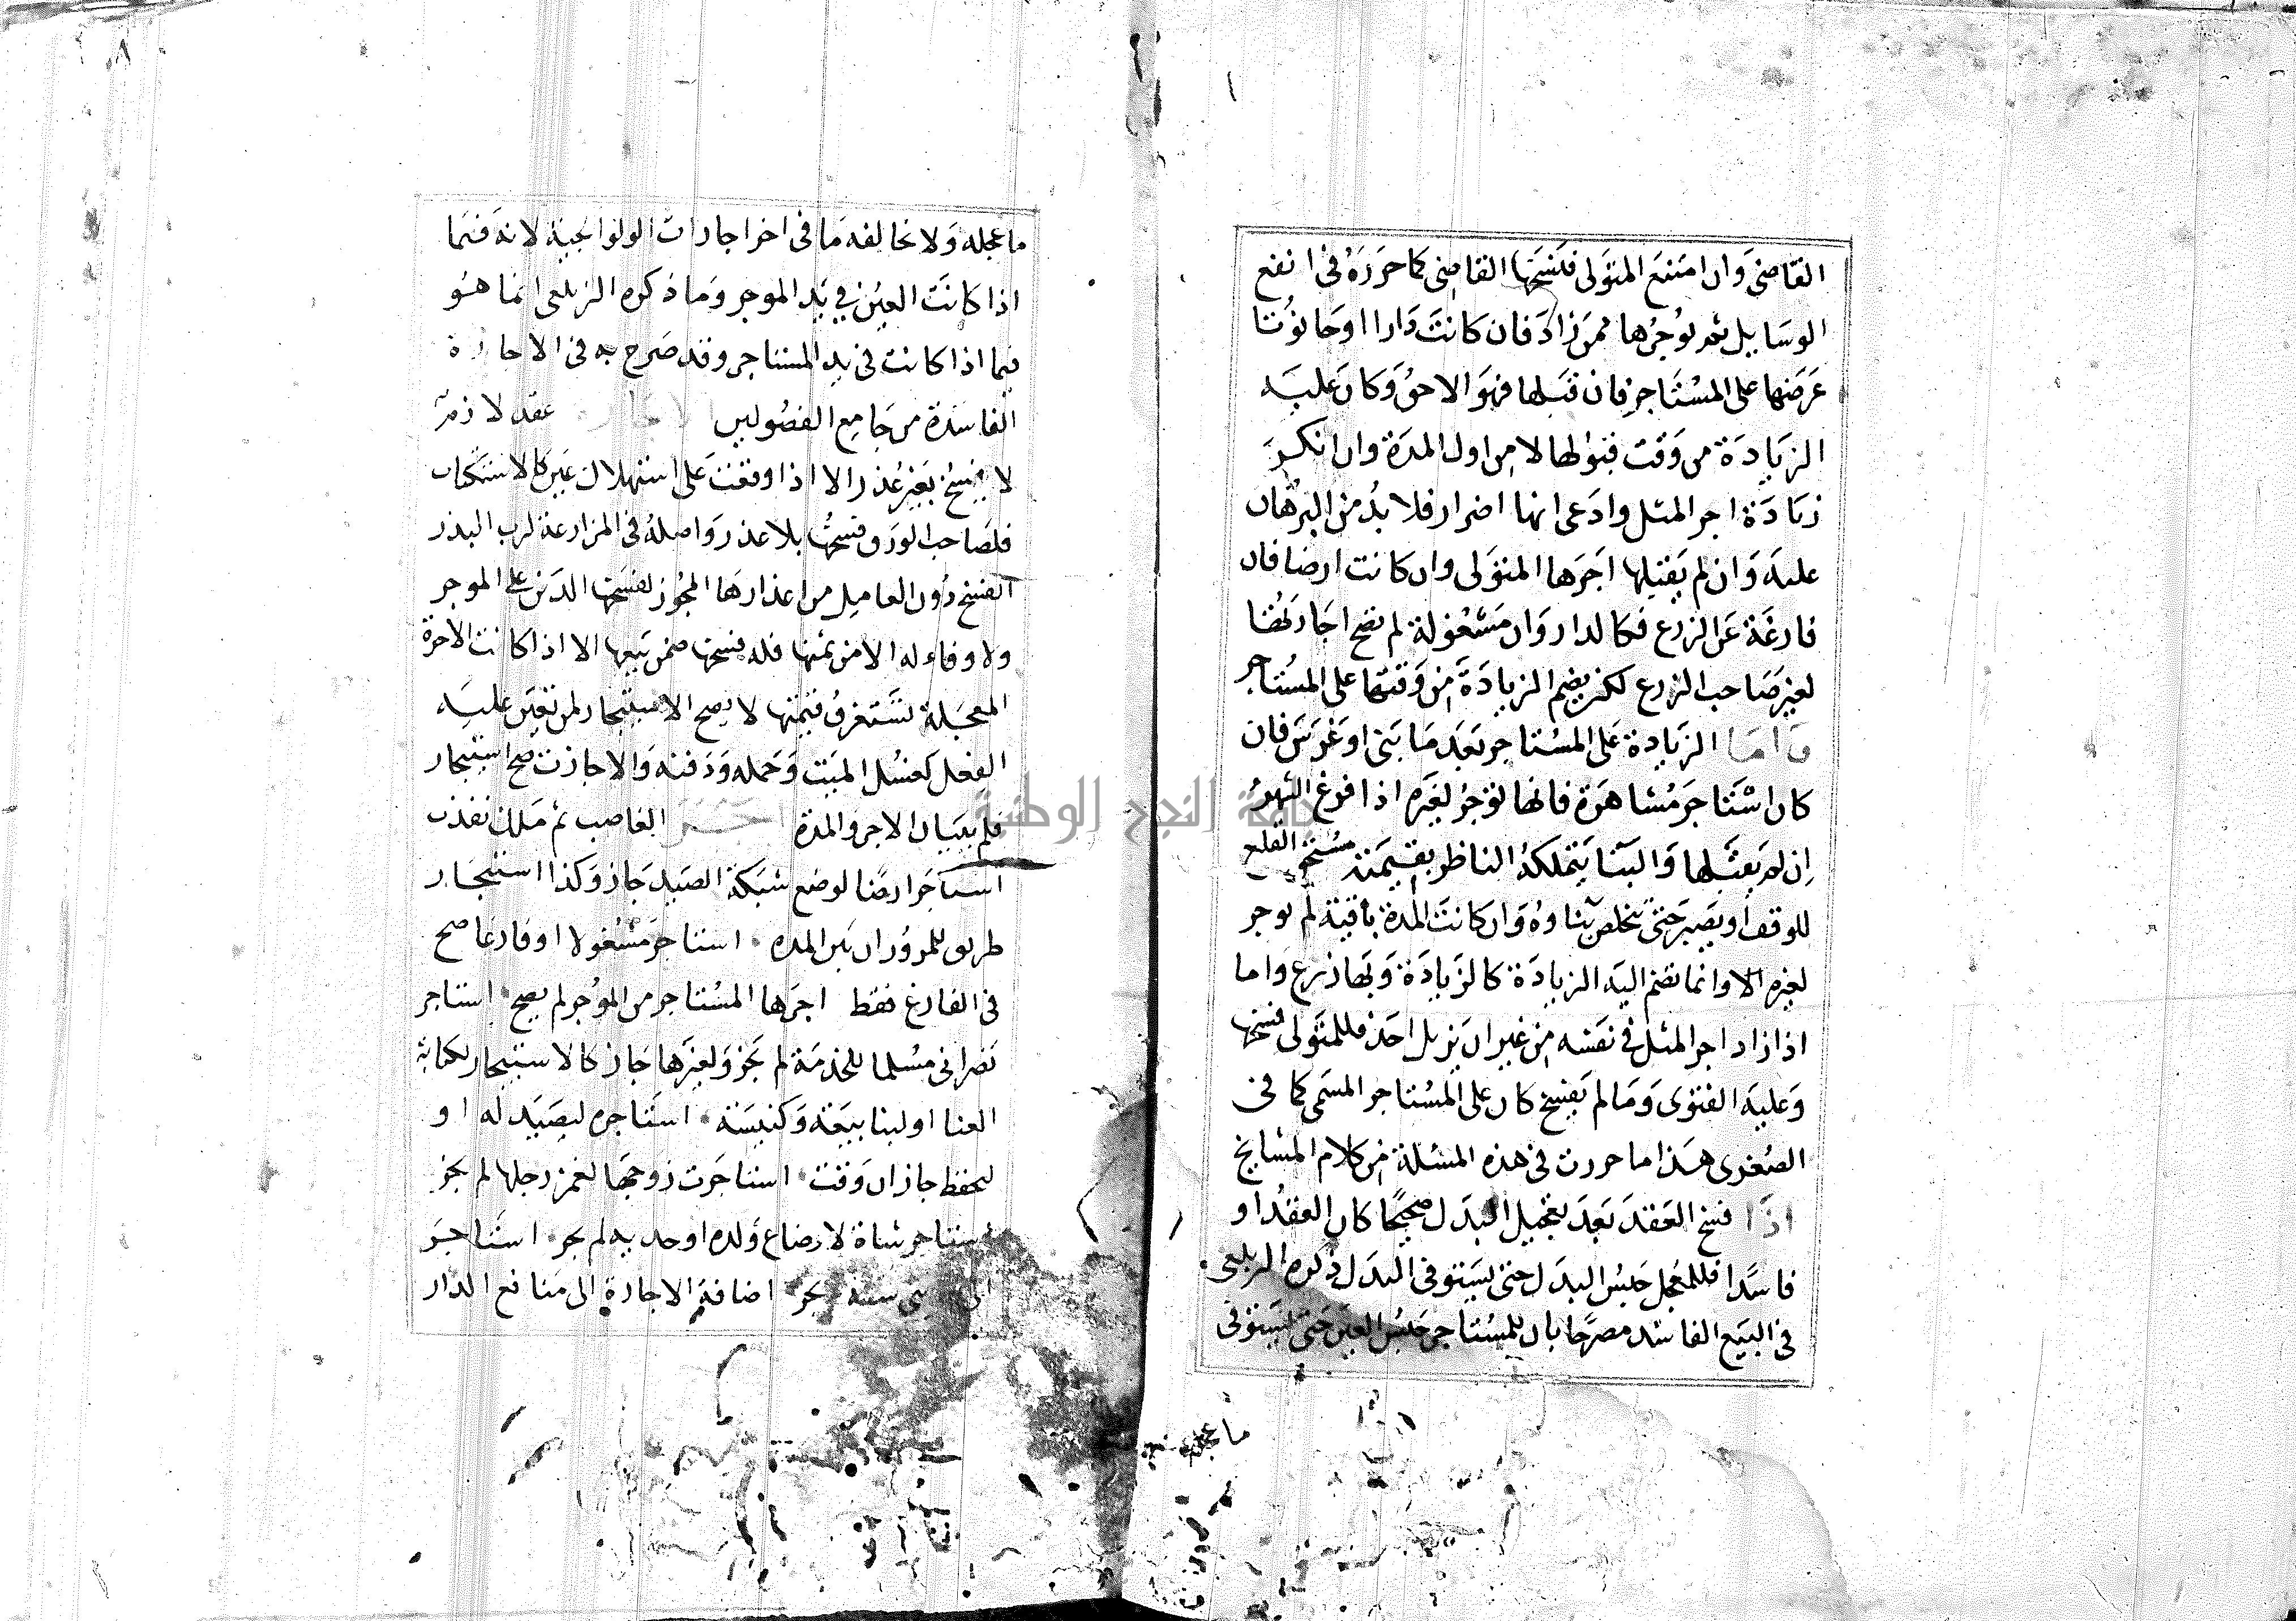 القاضي وان امتنع المتولى فسخها القاضى كما حررة في انفع
الوسايل ثم يوجرها ممن زاد فان كانت دارا او حانوتا
عرضها على المستاجر فان قبلها فهو الاحق وكان عليه
الزيادة من وقت قبولها لا من اول المدة وان انكر
زيادة اجر المثل وادعى انها اضرار فلا بد من البرهان
عليه وان لم يقبلها اجرها المتولى وان كانت ارضا فان
فارغة عن الزرع فكالدار وان مشغولة لم تصح اجارتها
لغير صاحب الزرع لكن يضم الزيادة من وقتها على المستاجر
واما الزيادة على المستاجر بعد ما بنى او غرس فان
كان استاجر مشاهرة فانها توجر لغيره اذا فرغ الشهر
ان لم يقبلها والبنا يتملكه الناظر بقيمته مستحق القلع
للوقف او يصبر حتى يتخلص بناوه وان كانت المدة باقية لم توجر
لغيره الا وانما تضم اليه الزيادة كالزيادة وبها زرع واما
اذا زاد اجر المثل في نفسه من غير ان يزيل احد فللمتولى فسخها
وعليه الفتوى وما لم يفسخ كان على المستاجر المسمى كما في
الصغرى هذا ما حررت في هذه المسئلة من كلام المشايخ
اذا فسخ العقد بعد تعجيل البدل صحيحا كان العقد او
فاسدا فللمعجل حبس البدل حتى يستوفى البدل ذكره الزيلعى
في البيع الفاسد مصرحا بان للمستاجر حبس العين حتى يستوفى
ما عجله
ما عجله ولا يخالفه ما في اخر اجارات الولوالجية لانه فيما
اذا كانت العين في يد الموجر وما ذكره الزيلعى انما هو
فيما اذا كانت في يد المستاجر وقد صرح به في الاجارة
الفاسدة من جامع الفصولين الاجارة عقد لازم
لا ينفسخ بغير عذر الا اذا وقعت على استهلاك عين كالاستكتاب
فلصاحب الورق فسخها بلا عذر واصله في المزارعة لرب البذر
الفسخ دون العامل من اعذارها المجوز لفسخها الدين على الموجر
ولا وفاء له الا من ثمنها فله فسخها ضمن بيعها الا اذا كانت الاجرة
المعجلة تستغرق قيمتها لا يصح الاستيجار لمن تعين عليه
الفعل كغسل الميت وحمله ودفنه والا جازت صح استيجار
قلم ببيان الاجر والمدة اجر الغاصب ثم ملك نفذت
استاجر ارضا لوضع شبكة الصيد جاز وكذا استيجار
طريق للمرور ان بين المده استاجر مشغولا او فارغا صح
في الفارغ فقط اجرها المستاجر من الموجر لم يصح استاجر
نصرانى مسلما للخدمة لم يجز ولغيرها جاز كالاستيجار لكتابة
الغنا او لبنا بيعة وكنيسة استاجره ليصيد له او
ليحفظ جاز ان وقت استاجرت زوجها لغمز رجلها لم يجز
استاجر شاة لارضاع ولده او جديه لم يجز استاجر
الى سنة يجز اضافة الاجارة الى منافع الدار
جامعة النجاح الوطنية